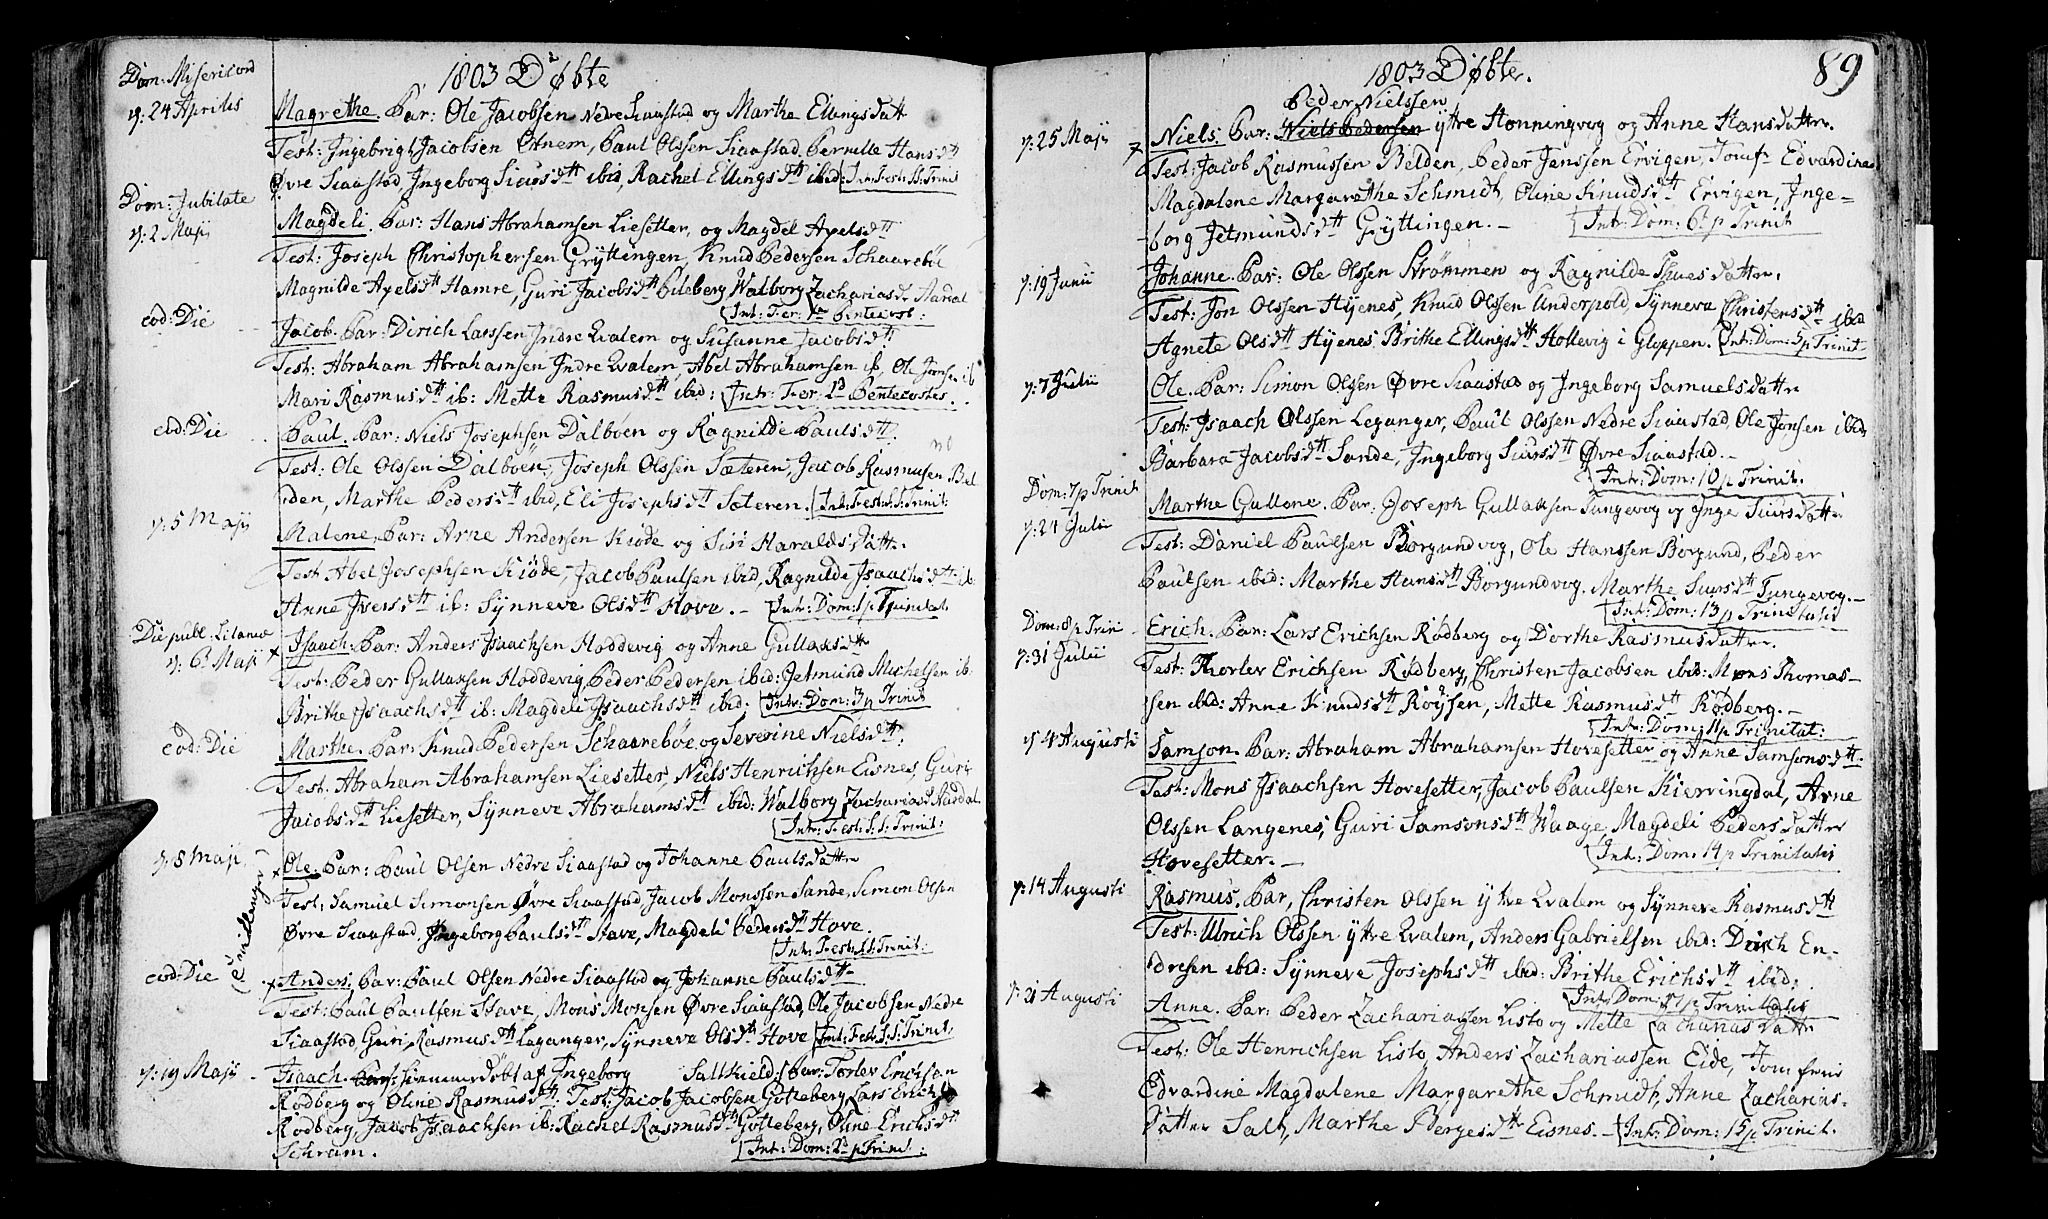 1803 Døbte
Dom: Misericord
y: 24 Aprilis
Magrethe. Par: Ole Jacobsen Nedre Siaastad og Marthe Ellingsdatt
Test: Ingebrigt Jacobsen Ornem, Paul Olssen Siaastad, Pernille Hansdtt
Øvre Siaastad, Ingeborg Siursdtt ibid, Rachel Ellingsdtt ibid: Int: Fest: SS: Trinit
Dom: Jubilate
y: 2 Maji
Magdeli. Par: Hans Abrahamsen Liesetter, og Magdel Axelsdtt
Test: Joseph Christophersen Gryttingen, Knud Pedersen Schaarebøe
Magnilde Axelsdtt Hamre, Guri Jacobsdtt Bileberg Walborg Zachariasdr Aardal
Int: Fer: Pentecost:
eod: Die
Jacob. Par: Dirich Larssen Indre Qvalem og Susanne Jacobsdtt
Test: Abraham Abrahamsen Indre Qvalem, Abel Abrahamsen ib, Ole Jonsen ib
Mari Rasmusdtt ib: Mette Rasmusdtt ibid: Int: Fer: Pentecostes.
eod: Die
Paul. Par: Niels Josephsen Dalbøen og Ragnilde Paulsdtt.
Test: Ole Olssen Dalbøen, Joseph Olssen Sæteren, Jacob Rasmusen Bel
den, Marthe Pedersdtt ibid, Eli Josephsdtt Sæteren. Int: Fest: S:S: Trinit:
y: 5 Maji
Malene, Par: Arne Andersen Kiøde og Siri Haraldsdatter.
Test Abel Josephsen Kiøde, Jacob Paulsen ibid, Ragnilde Isaachsdtt ib:
Anne Iversdtt ib: Synneve Olsdtt Hove. Int: Dom: 1 p Trinitat
Die publ: Litaniæ
y: 6 Maji
Isaach. Par: Anders Isaachsen Hoddevig og Anne Gullaksdtt
Test: Peder Gullaksen Hoddevig, Peder Pedersen ibid: Jetmund Michelsen ib:
Brithe Isaachsdtt ib: Magdeli Isaachsdtt ibid; Int: Dom: 3 p Trinit
eod: Die
Marthe. Par: Knud Pedersen Schaarebøe og Severine Nielsdtt;
Test: Abraham Abrahamsen Liesetter, Niels Henrichsen Eisnes, Guri
Jacobsdtt Liesetter, Synneve Abrahamsdtt ibid: Walborg Zachariasd Aardal
Int: Fest: S: S: Trinit:
y: 8 Maji
(Tvillinger)
Ole. Par: Paul Olsen Nedre Siaastad og Johanne Paulsdatter
Test: Samuel Simonsen Øvre Siaastad, Jacob Monssen Sande, Simon Olsen
Øvre Siaastad, Ingeborg Paulsdtt Stave, Magdeli Pedersdtt Hove.
Int: Fest: S.S. Trinit:
eod: Die
Anders. Par: Paul Olsen Nedre Siaastad og Johanne Paulsdtt
Test: Paul Paulsen Stave, Mons Monsen Øvre Siaastad, Ole Jacobsen Nedre
Siaastad Guri Rasmusdtt Leganger, Synneve Olsdtt Hove Int: Fest: S:S: Trinit:
y: 19 Maji
Isaach. hiemmedøbt af Ingeborg Saltkield: Par: Torlev Erichsen
Rødberg og Oline Rasmusdtt. Test: Jacob Jacobsen Gotteberg, Lars Erichs
Rødberg, Jacob Isaachsen ib: Rachel Rasmusdtt Gotteberg, Oline Erichsdtt
Schram. Int: Dom: 2 p Trinit:
1803 Døbte.
89
y: 25 Maji
Peder Nielssen
Niels. Par: Niels Pedersen ytre Honningvog og Anne Hansdatter.
Test: Jacob Rasmussen Belden, Peder Janssen Ervigen, Jomf: Edvardine
Magdalene Margarethe Schmidt, Oline Knudsdtt Ervigen, Inge=
borg Jetmundsdtt Gryttingen. Int: Dom: 6 p Trinit
y: 19 Junii
Johanne. Par: Ole Olssen Strømmen og Ragnilde Thuesdatter.
Test: Jon Olssen Hyenes, Knud Olssen Underpold, Synneva Christensdtt ibid
Agnete Olsdtt Hyenes Brithe Ellingsdtt Hollevig i Gloppen. Int: Dom: 5 p Trinit
y: 7 Julii
Ole. Par: Simon Olssen Øvre Siaastad og Ingeborg Samuelsdatter
Test: Isaach Olssen Leganger, Paul Olssen Nedre Siaastad, Ole Jonsen ibid,
Barbara Jacobsdtt Sande, Ingeborg Siursdtt Øvre Siaastad.
Int: Dom: 10 p Trinit.
Dom: 7 p Trinit
y: 24 Julii
Marthe Gullone. Par: Joseph Gullaksen Tungevog og Inge Siursdatter
Test: Daniel Paulsen Borgundvog, Ole Hanssen Borgund, Peder
Paulsen ibid: Marthe Hansdtt Borgundvog, Marthe Siursdtt Tungevog.
Int: Dom: 13 p Trinitatis
Dom: 8 p Trini
y: 31 Julii
Erich. Par: Lars Erichsen Rødberg og Dorthe Rasmusdatter.
Test: Thorlev Erichsen Rødberg, Christen Jacobsen ibid: Mons Thomas=
sen ibid: Anne Knudsdtt Røysen, Mette Rasmusdtt Rødberg.
Int: Dom: 11 p Trinitat:
y: 4 Augusti
Samson. Par: Abraham Abrahamsen Hovesetter og Anne Samsonsdtt.
Test: Mons Isaachsen Hovesetter, Jacob Paulsen Kierringdal, Arne
Olssen Langenes, Guri Samsonsdtt Waage Magdeli Pedersdatter
Hovesetter. Int: Dom: 14 p Trinitatis
y: 14 Augusti
Rasmus. Par, Christen Olssen ytre Qvalem og Synneve Rasmusdtt
Test: Ulrich Olssen ytre Qvalem, Anders Gabrielsen ibid: Dirich En=
dresen ibid: Synneve Josephsdtt ibid: Brithe Erichsdtt ibid:
Int: Dom: 17 p Trinitatis
y: 21 Augusti
Anne. Par: Peder Zachariassen Listo og Mette Zachariasdatter
Test: Ole Henrichsen Listo, Anders Zachariassen Eide, Jomfrue
Edvardine Magdalene Margarethe Schmidt, Anne Zacharias=
datter Salt, Marthe Bergesdtt Eisnes. Int: Dom: 15 p Trinit.